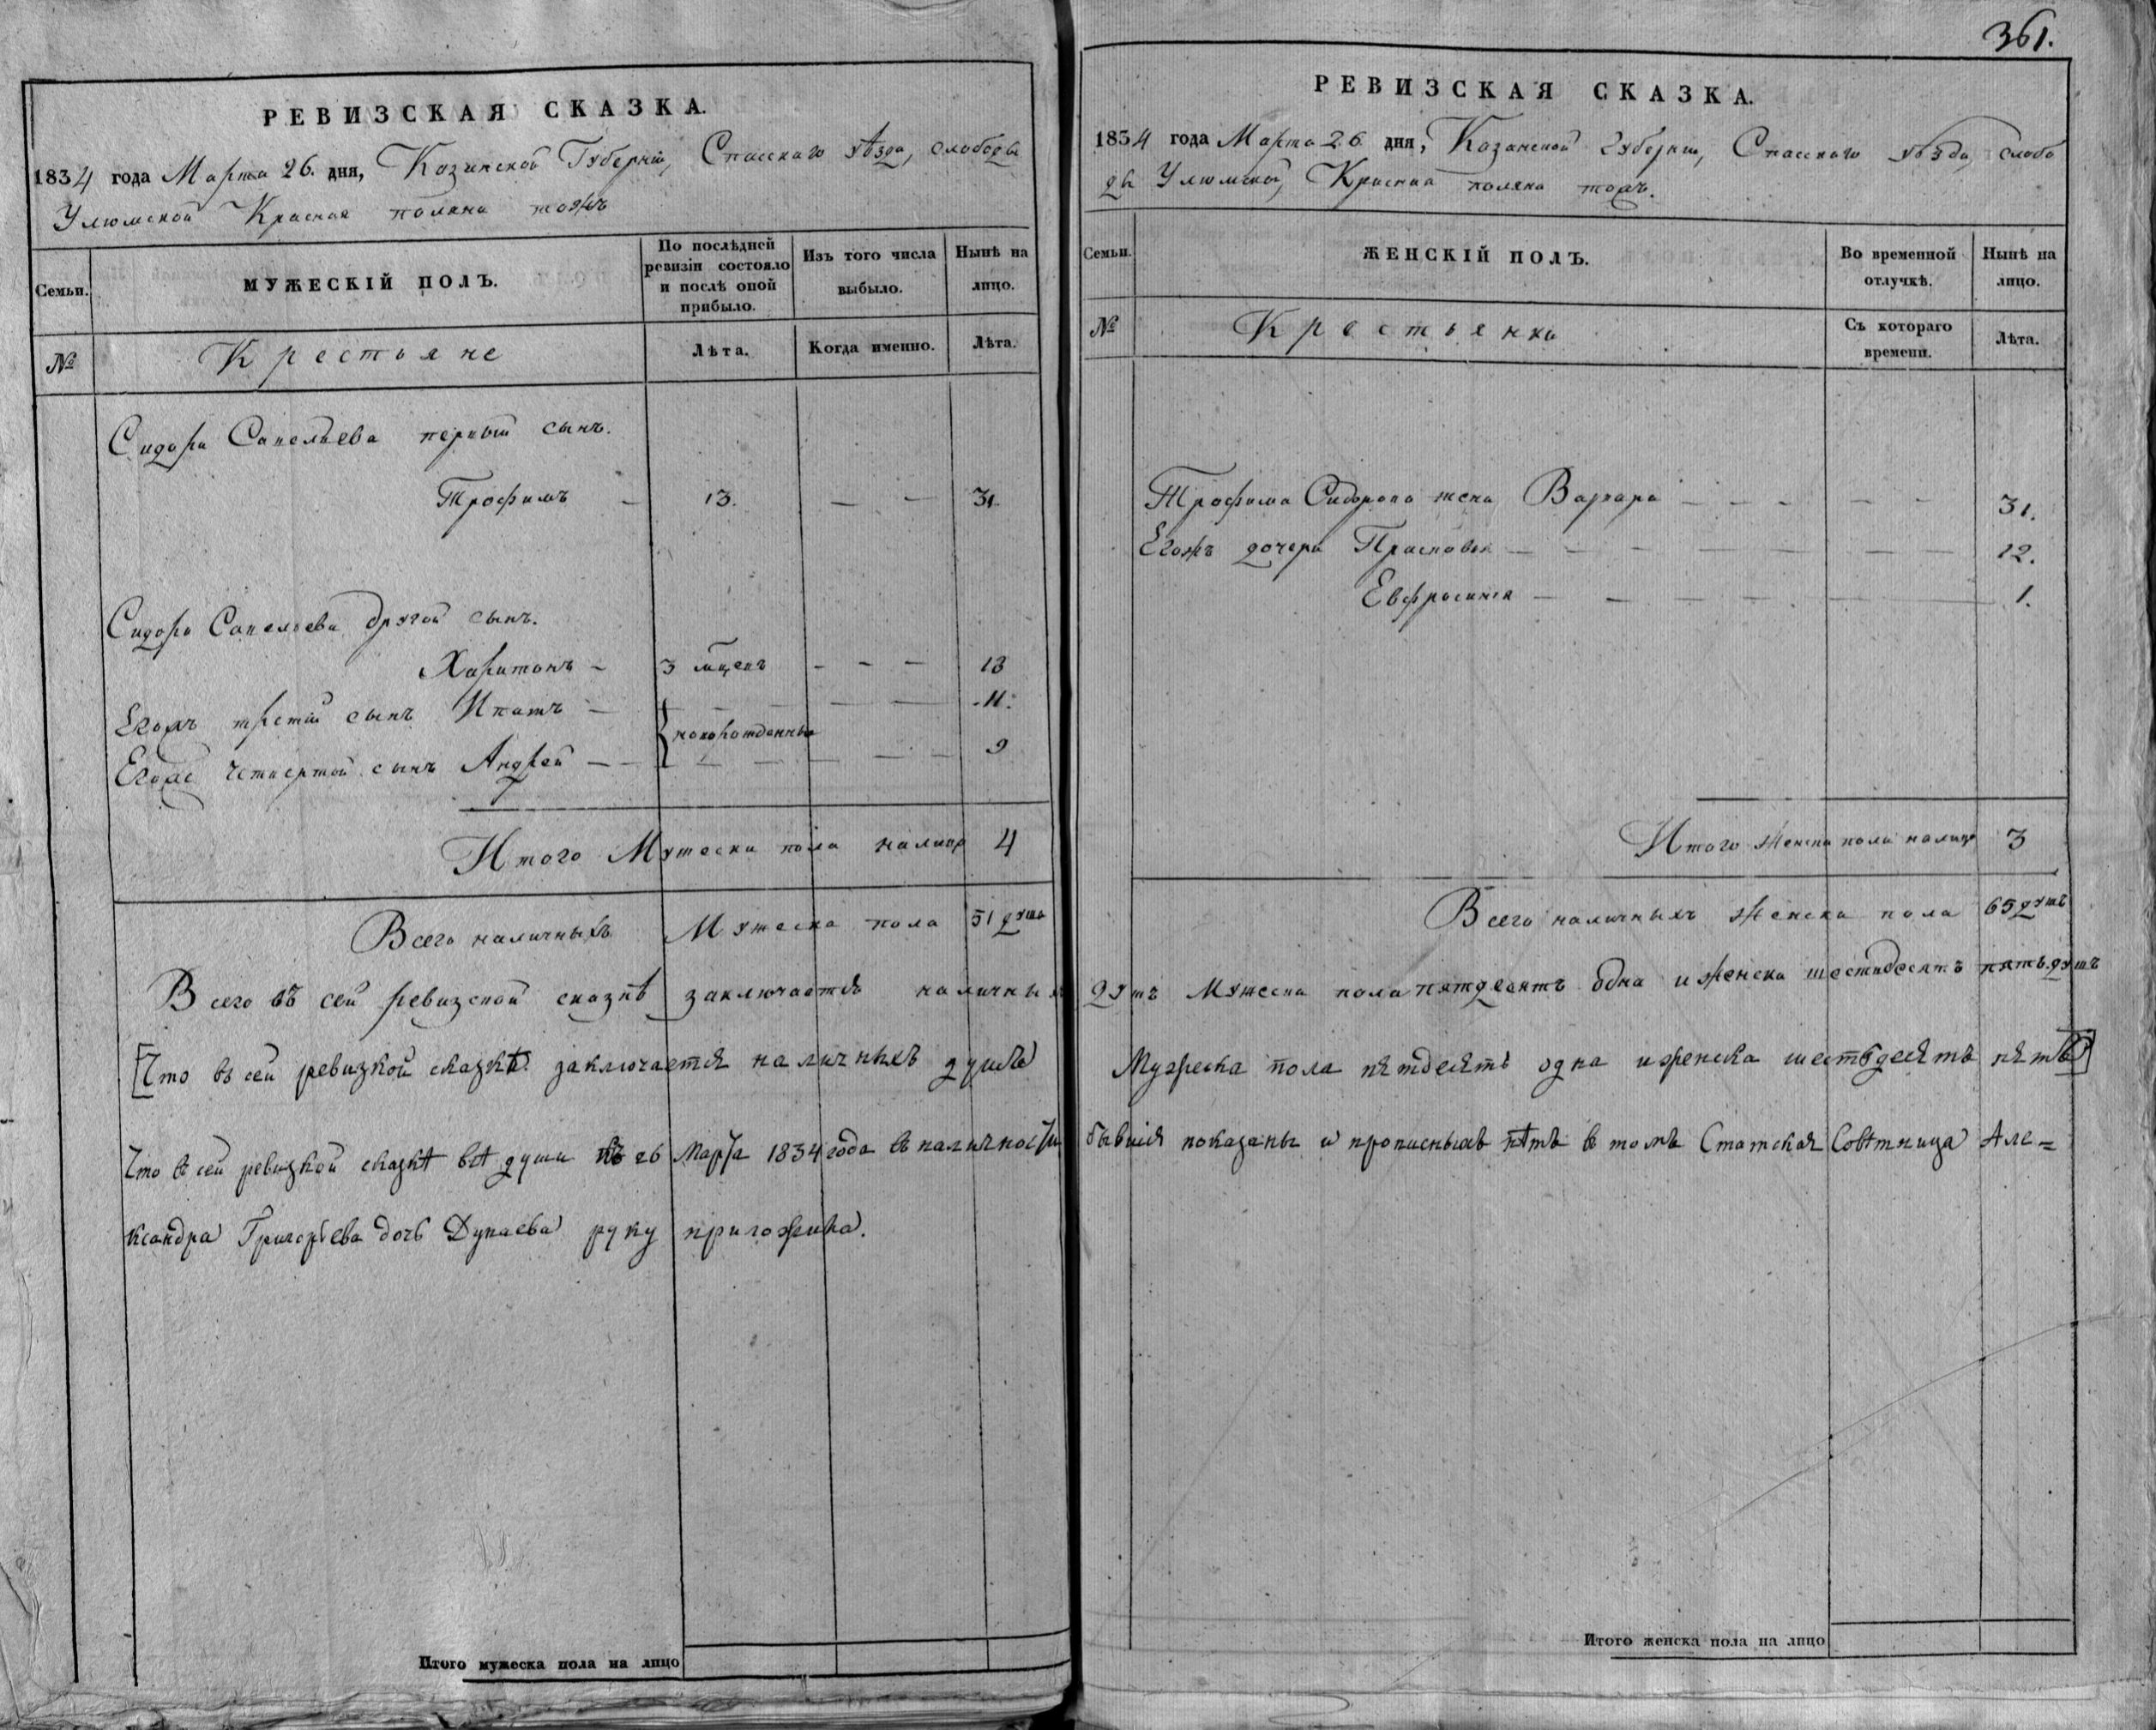 РЕВИЗСКАЯ СКАЗКА.
1834 года Марта 26. дня, Казанской Губернiи, Спасскаго уѣзда, слободы
Улюмской Красная поляна тожъ
Семьи.
МУЖЕСКІЙ ПОЛЪ.
По послѣдней ревизіи состояло и послѣ оной прибыло.
Изъ того числа выбыло.
Нынѣ на лицо.
№
Крестьяне
Лѣта.
Когда именно.
Лѣта.
Сидора Савельева первый сынъ.
Трофимъ 13. 31.
Сидора Савельева другой сынъ.
Харитонъ 3 мѣсяцъ 18
Егожъ третiй сынъ Ипатъ 11.
новорожденные
Егоже четвертой сынъ Андрей 9
Итого Мужеска пола налицо 4
Всего наличныхъ Мужеска пола 51 душа
Всего въ сей ревизской сказкѣ заключается наличныхъ
Что въ сей ревизкой сказкѣ заключается наличныхъ душъ
Что въ сей ревизкой сказкѣ всѣ души къ 26 Марта 1834 года въ наличности
ксандра Григорьева дочь Дунаева руку приложила.
Итого мужеска пола на лицо
361.
РЕВИЗСКАЯ СКАЗКА.
1834 года Марта 26 дня, Казанской Губернiи, Спасскаго уѣзда, слобо
ды Улюмской, Красная поляна тожъ.
Семьи.
ЖЕНСКІЙ ПОЛЪ.
Во временной отлучкѣ.
Нынѣ на лицо.
№
Крестьянки
Съ котораго времени.
Лѣта.
Трофима Сидорова жена Варвара 31.
Егожъ дочери Прасковья 12.
Евфросинья 1.
Итого Женска пола налицо 3
Всего наличныхъ Женска пола 65 душъ
душъ Мужеска пола пятдесятъ одна и женска шестидесятъ пять душъ
Мужеска пола пятдесятъ одна и женска шестьдесятъ пять
бывшiя показаны и прописныхъ нѣтъ въ томъ Статская Совѣтница Але=
Итого женска пола на лицо